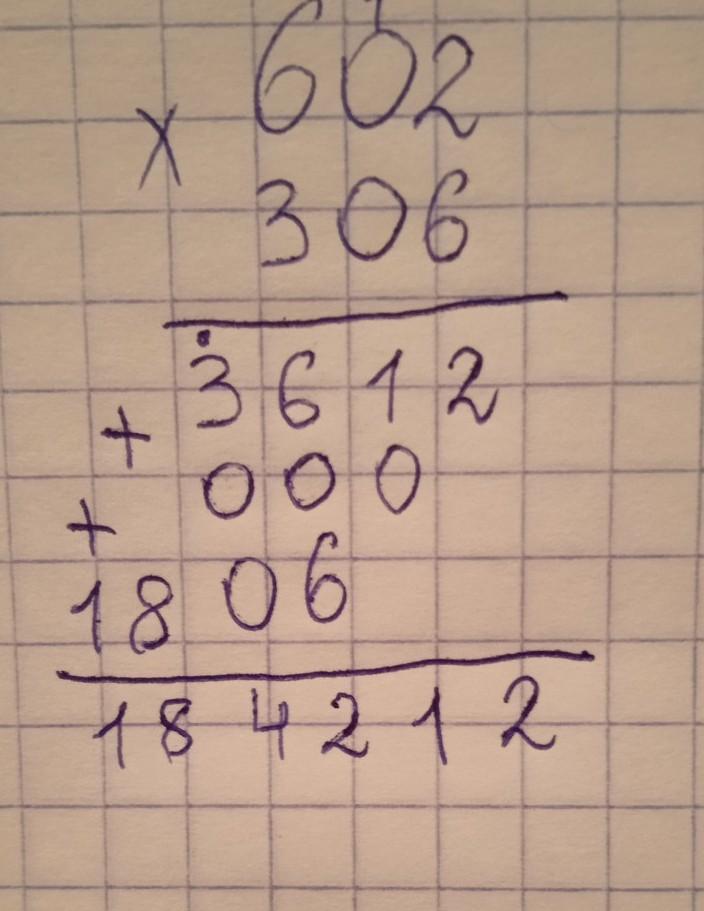 602
x 306
3612
+ 000
+ 1806
184212